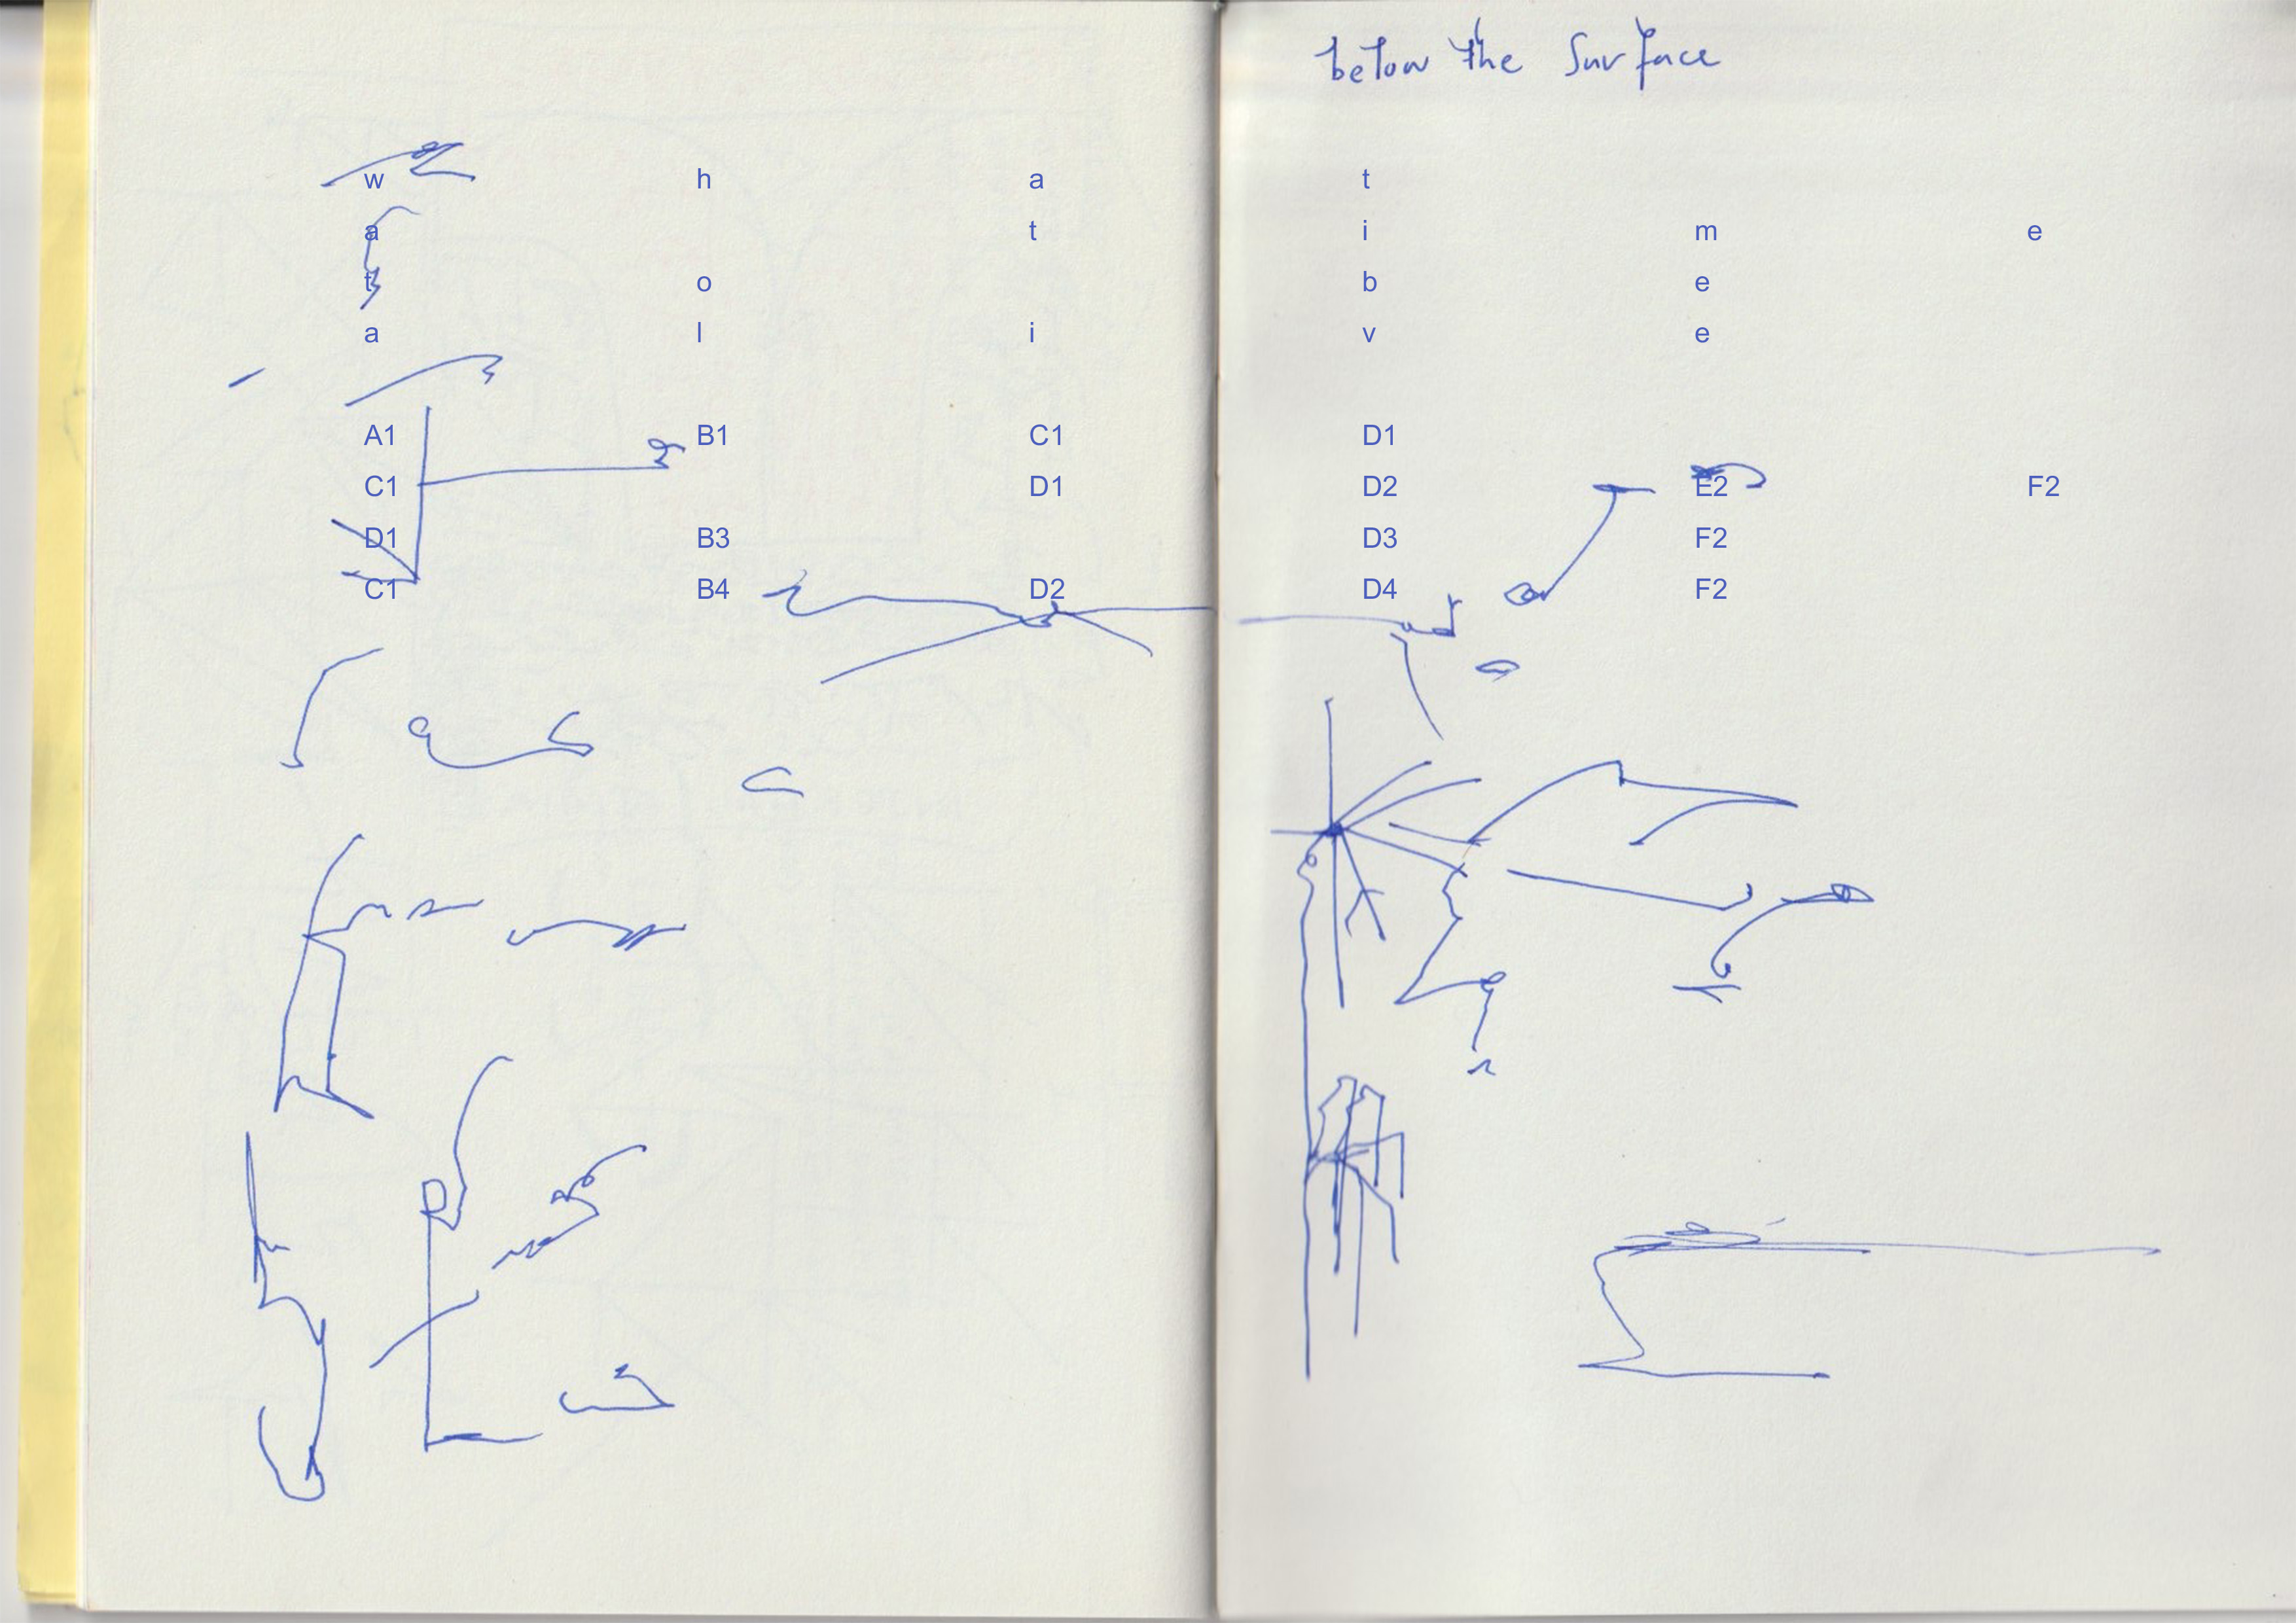 below the Surface
w h a t
a t i m e
t o b e
a l i v e
A1 B1 C1 D1
C1 D1 D2 E2 F2
D1 B3 D3 F2
C1 B4 D2 D4 F2